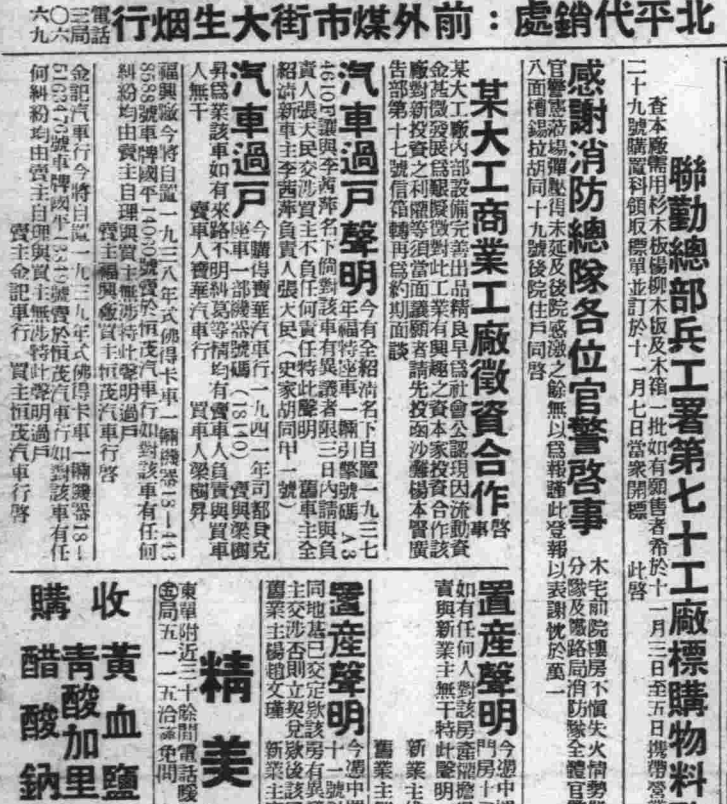 北平代銷處：前外煤市街大生烟行
電話三局〇六六九
聯勤總部兵工署第七十工廠標購物料
查本廠需用杉木板楊柳木板及木箱一批如有願售者希於十一月三日至五日携帶營業
二十九號購置科領取標單並訂於十一月七日當衆開標　此啓
感謝消防總隊各位官警啓事
本宅前院樓房不慎失火情勢
分隊及鐵路局消防隊全體官
官警憲蒞場彈壓得未延及後院感激之餘無以爲報謹此登報以表謝忱於萬一
八面槽錫拉胡同十九號後院住戶同啓
某大工商業工廠徵資合作啓事
某大工廠內部設備完善出品精良早爲社會公認現因流動資
金甚微發展爲艱擬徵對此工業有興趣之資本家投資合作該
廠對新投資之利權等須當面議願者請先投函沙灘楊本賢廣
告部第十七號信箱轉再爲約期面談
汽車過戶聲明
今有全紹清名下自置一九三七
年福特座車一輛引擎號碼A3
4610F讓與李茜萍名下倘對該車有異議者限三日內請與負
責人張大民交涉買主不負任何責任特此聲明　舊車主全
紹清新車主李茜萍負責人張大民（史家胡同甲一號）
汽車過戶
今購得寶華汽車行一九四一年司都貝克
座車一部機器號碼（18140）賣與梁樹
昇爲業該車如有來路不明糾葛等情均有賣車人負責與買車
人無干　賣車人寶華汽車行　買車人梁樹昇
福興廠今將自置一九三八年式佛得卡車一輛機器18—443
8588號車牌國平14060號賣於恒茂汽車行如對該車有任何
糾紛均由賣主自理與買主無涉特此聲明過戶
賣主福興廠買主恒茂汽車行啓
金記汽車行今將自置一九三九年式佛得卡車一輛機器18—
5163476號車牌國平13846號賣於恒茂汽車行如對該車有任
何糾紛均由賣主自理與買主無涉特此聲明過戶
賣主金記車行　買主恒茂汽車行啓
置産聲明
今憑中
門房十
如有任何人對該房產權擔
責與新業主無干特此聲明
新業主
舊業主
置産聲明
今憑中
十一號
同地基已交定欵該房有異
主交涉否則立契兌欵後該
舊業主楊趙文瑾　新業主
精美
東單附近三十餘間電話暖
五局五一一五洽議免間
收購
黃血鹽
青酸加里
醋酸鈉